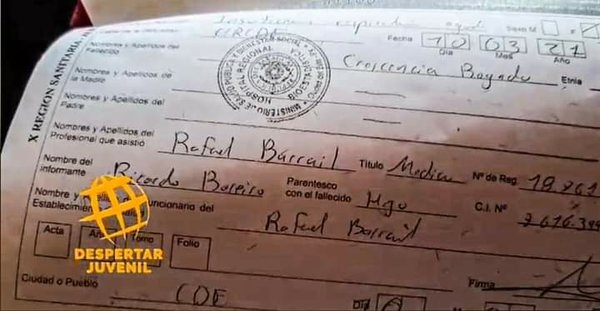 Insuficiencia respiratoria aguda Sexo M
X REGION SANITARIA
Nombres y Apellidos del Fallecido Fecha 10 03 21
Día Mes Año
Nombres y Apellidos de la Madre Crescencia Bogado Etnia
MINISTERIO DE SALUD PUBLICA Y BIENESTAR SOCIAL
HOSPITAL REGIONAL
Nombres y Apellidos del Padre
Nombres y Apellidos del Profesional que asistió Rafael Barrail Título Medico Nº de Reg.
Nombre del informante Ricardo Boreiro Parentesco con el fallecido Hijo C.I. Nº
Nombre y Funcionario del Establecimiento Rafael Barrail
Acta Año Tomo Folio
DESPERTAR
JUVENIL
Firma
Ciudad o Pueblo CDE Día